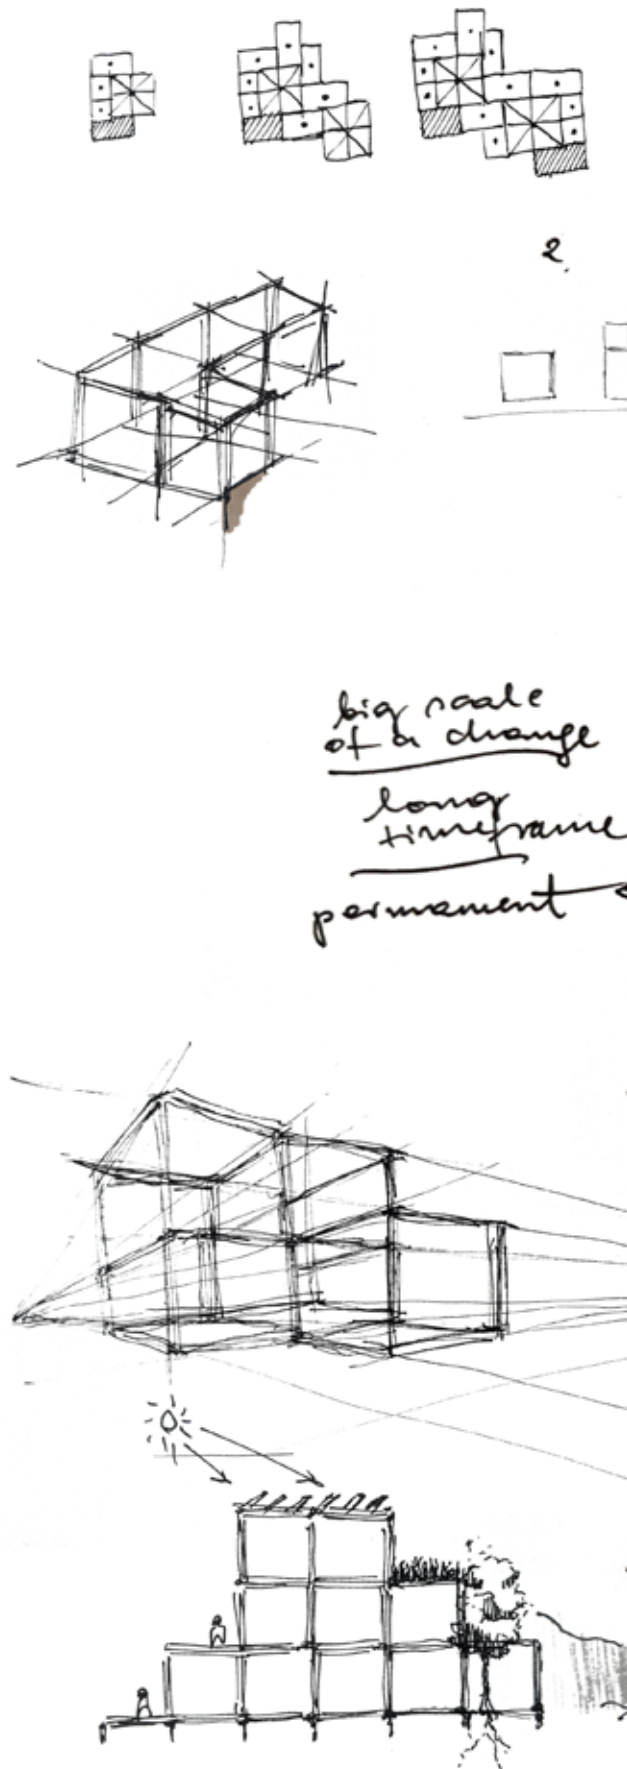 2.
big scale
of a change
long
timeframe
permament